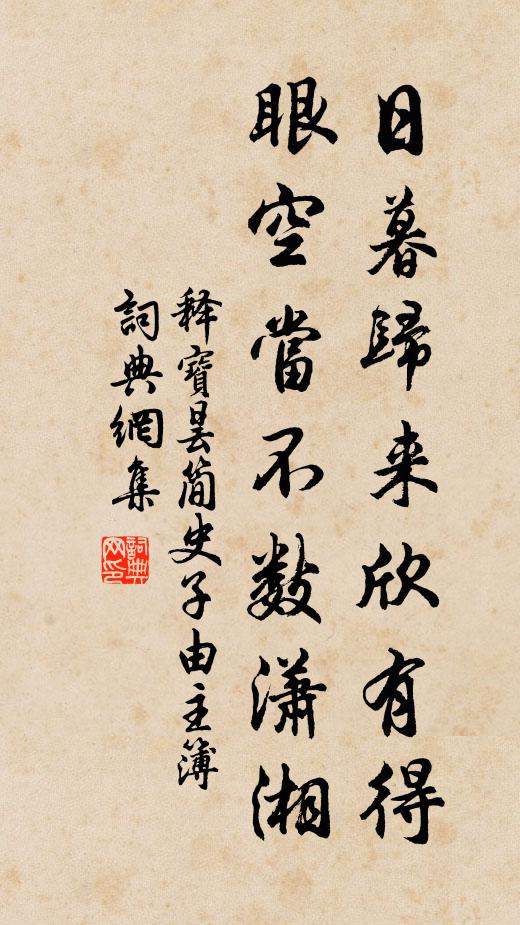 日暮歸来欣有得
眼空當不数瀟湘
释寶昙简史子由主簿
詞典網集
詞典网印